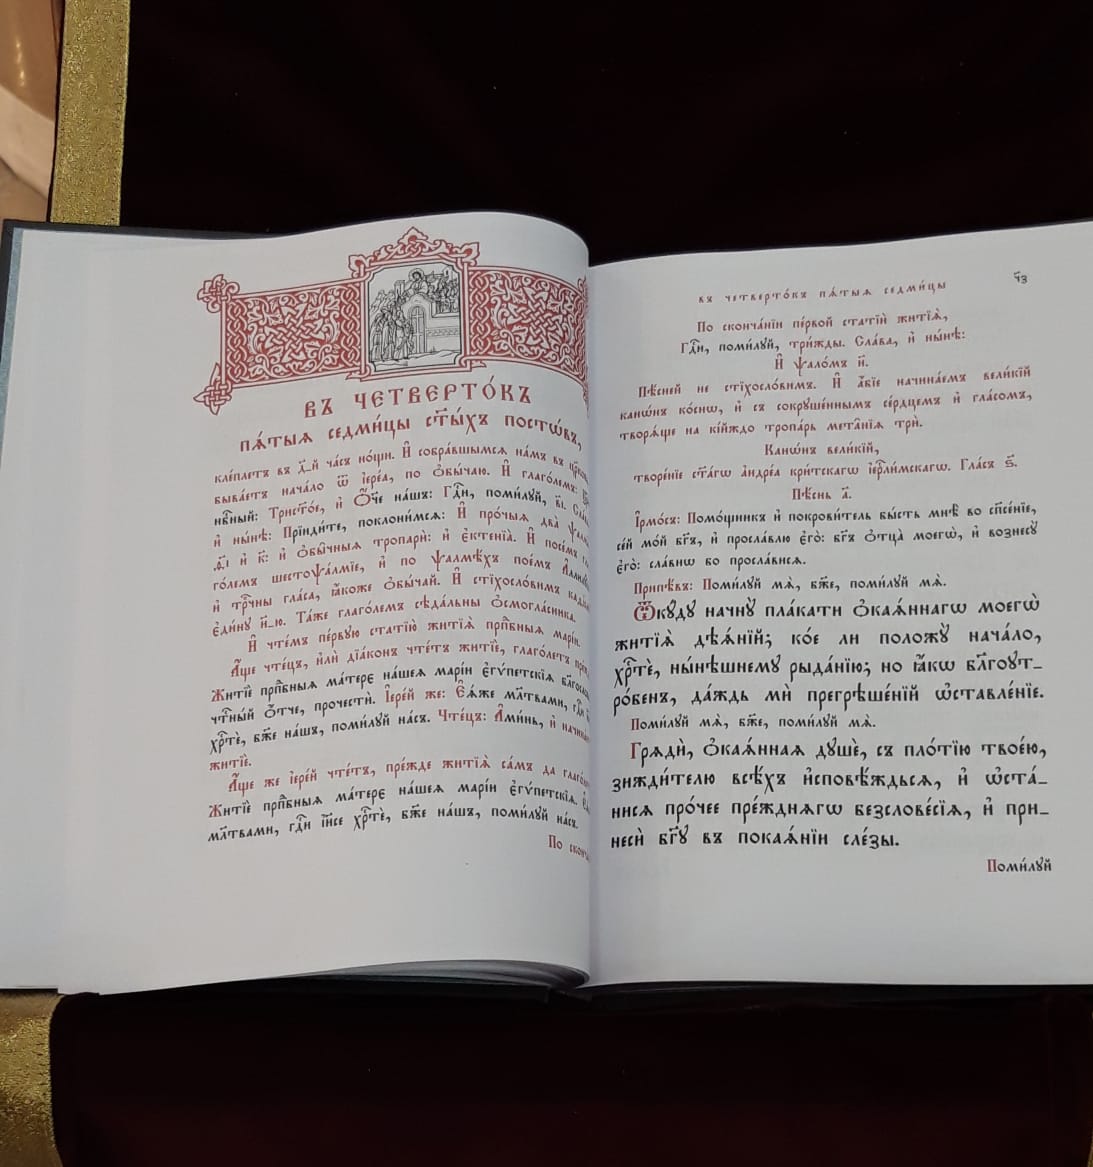 ВЪ ЧЕТВЕРТО́КЪ
ПѦ́ТЫѦ СЕДМИ́ЦЫ СТ҃Ы́ХЪ ПОСТѠ́ВЪ,
кле́плетъ въ д҃_й ча́съ но́щи. И҆ собра́вшымсѧ на́мъ въ
быва́етъ нача́ло ѿ і҆ере́а, по ѻ҆бы́чаю. И҆ глаго́лемъ:
Трист҃о́е, и҆ Ѻ҆́ч҃е на́шъ: Гд҇и, поми́лꙋй, в҃і.
и҆ ны́нѣ: Прїиди́те, поклони́мсѧ: И҆ про́чыѧ два̀
и҆ к҃: и҆ ѻ҆бы̑чныѧ тропари̑: и҆ є҆ктенїѧ̀. И҆ посе́мъ
го́лемъ шестоѱа́лмїе, и҆ по ѱалмѣ́хъ пое́мъ
и҆ трⷪ҇чны гла́са, ꙗ҆́коже ѻ҆бы́чай. И҆ стїхосло́вимъ
є҆ди́нꙋ и҃_ю. Та́же глаго́лемъ сѣда́льны ѻ҆смогла́сника.
И҆ чте́мъ пе́рвꙋю статїю̀ житїѧ̀ прпⷣбныѧ марі́и.
А҆́ще чте́цъ, и҆лѝ дїа́конъ чте́тъ житїѐ, глаго́летъ
Житїѐ прпⷣбныѧ ма́тере на́шеѧ марі́и є҆гѵ́петскїѧ
чтⷭ҇ный ѻ҆́тче, прочестѝ. І҆ере́й же: Е҆ѧ́же мл҃твами, гдⷭ҇и
хрⷭ҇тѐ, бж҃е на́шъ, поми́лꙋй на́съ. Чте́цъ: А҆ми́нь, и҆
житїѐ.
А҆́ще же і҆ере́й чте́тъ, пре́жде житїѧ̀ са́мъ да
Житїѐ прпⷣбныѧ ма́тере на́шеѧ марі́и є҆гѵ́петскїѧ.
мл҃твами, гдⷭ҇и і҆и҃се хрⷭ҇тѐ, бж҃е на́шъ, поми́лꙋй на́съ.
По
въ четверто́къ пѧ́тыѧ седми́цы
ч҃з
По сконча́нїи пе́рвой статїѝ житїѧ̀,
Гдⷭ҇и, поми́лꙋй, три́жды. Сла́ва, и҆ ны́нѣ:
И҆ ѱало́мъ н҃.
Пѣ́сней не стїхосло́вимъ. И҆ а҆́бїе начина́емъ вели́кїй
канѡ́нъ ко́снѡ, и҆ съ сокрꙋше́ннымъ се́рдцемъ и҆ гла́сомъ,
творѧ́ще на кі́йждо тропа́рь мета̑нїѧ трѝ.
Канѡ́нъ вели́кїй,
творе́нїе ст҃а́гѡ а҆ндре́а кри́тскагѡ і҆ерⷭ҇ли́мскагѡ. Гла́съ ѕ҃.
Пѣ́снь а҃.
І҆рмо́съ: Помо́щникъ и҆ покрови́тель бы́сть мнѣ̀ во сп҃се́нїе,
се́й мо́й бг҃ъ, и҆ просла́влю є҆го̀: бг҃ъ ѻ҆тца̀ моегѡ̀, и҆ вознесꙋ̀
є҆го̀: сла́внѡ бо просла́висѧ.
Припѣ́въ: Поми́лꙋй мѧ̀, бж҃е, поми́лꙋй мѧ̀.
Ѿкꙋ́дꙋ начнꙋ̀ пла́кати ѻ҆каѧ́ннагѡ моегѡ̀
житїѧ̀ дѣѧ́нїй; ко́е ли положꙋ̀ нача́ло,
хрⷭ҇тѐ, ны́нѣшнемꙋ рыда́нїю; но ꙗ҆́кѡ бл҃гоꙋт_
ро́бенъ, да́ждь мѝ прегрѣше́нїй ѡ҆ставле́нїе.
Поми́лꙋй мѧ̀, бж҃е, поми́лꙋй мѧ̀.
Грѧдѝ, ѻ҆каѧ́ннаѧ дꙋшѐ, съ пло́тїю твое́ю,
зижди́телю всѣ́хъ и҆сповѣ́ждьсѧ, и҆ ѡ҆ста́_
нисѧ про́чее пре́ждиѧгѡ безслове́сїѧ, и҆ при_
несѝ бг҃ꙋ въ покаѧ́нїи сле́зы.
Поми́лꙋй